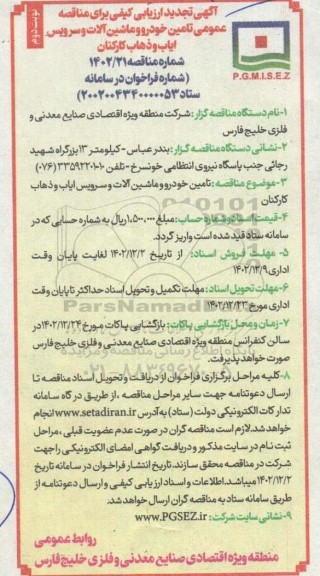 نوبت دوم
آگهی تجدید ارزیابی کیفی برای مناقصه
عمومی تامین خودرو و ماشین آلات و سرویس
ایاب و ذهاب کارکنان
شماره مناقصه ۱۴۰۲/۲۱
(شماره فراخوان در سامانه
ستاد ۲۰۰۲۰۰۴۳۴۰۰۰۰۰۵۳)
P.G.M.I.S.E.Z
۱-نام دستگاه مناقصه گزار: شرکت منطقه ویژه اقتصادی صنایع معدنی و
فلزی خلیج فارس
۲-نشانی دستگاه مناقصه گزار: بندرعباس - کیلومتر ۱۳ بزرگراه شهید
رجائی جنب پاسگاه نیروی انتظامی خونسرخ - تلفن ۱۰-۳۳۵۹۲۲۰۱ (۰۷۶)
۳-موضوع مناقصه: تامین خودرو و ماشین آلات و سرویس ایاب و ذهاب
کارکنان
۴-قیمت اسناد و شماره حساب: مبلغ ۱،۵۰۰،۰۰۰ ریال به شماره حسابی که در
سامانه ستاد قید شده است واریز گردد.
۵- مهلت فروش اسناد: از تاریخ ۱۴۰۲/۱۲/۲ لغایت پایان وقت
اداری ۱۴۰۲/۱۲/۹
۶-مهلت تحویل اسناد: مهلت تکمیل و تحویل اسناد حداکثر تا پایان وقت
اداری مورخ ۱۴۰۲/۱۲/۲۳
۷-زمان و محل بازگشایی پاکات: بازگشایی پاکات مورخ ۱۴۰۲/۱۲/۲۴ در
سالن کنفرانس منطقه ویژه اقتصادی صنایع معدنی و فلزی خلیج فارس
صورت خواهد پذیرفت.
۸-کلیه مراحل برگزاری فراخوان از دریافت و تحویل اسناد مناقصه تا
ارسال دعوتنامه جهت سایر مراحل مناقصه ، از طریق درگاه سامانه
تدارکات الکترونیکی دولت (ستاد) به آدرس www.setadiran.ir انجام
خواهد شد. لازم است مناقصه گران در صورت عدم عضویت قبلی ، مراحل
ثبت نام در سایت مذکور و دریافت گواهی امضای الکترونیکی را جهت
شرکت در مناقصه محقق سازند. تاریخ انتشار فراخوان در سامانه تاریخ
۱۴۰۲/۱۲/۲ میباشد. اطلاعات و اسناد ارزیابی کیفی و ارسال دعوتنامه از
طریق سامانه ستاد به مناقصه گران ارسال خواهد شد.
۹-نشانی سایت شرکت: www.PGSEZ.ir
روابط عمومی
منطقه ویژه اقتصادی صنایع معدنی و فلزی خلیج فارس